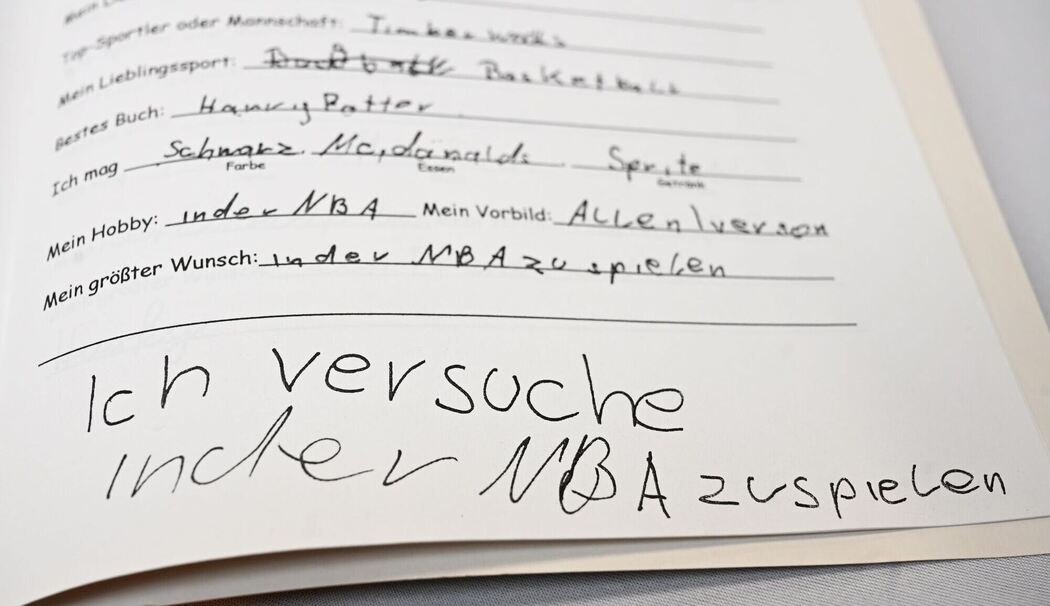 Top-Sportler oder Mannschaft: Timberwolfs
Mein Lieblingssport: Basketball
Bestes Buch: Harry Potter
Ich mag Schwarz. Mc,donalds Sprite
Farbe Essen Getränk
Mein Hobby: in der NBA Mein Vorbild: ALLen Iverson
Mein größter Wunsch: in der NBA zu spielen
Ich versuche
in der NBA zu spielen